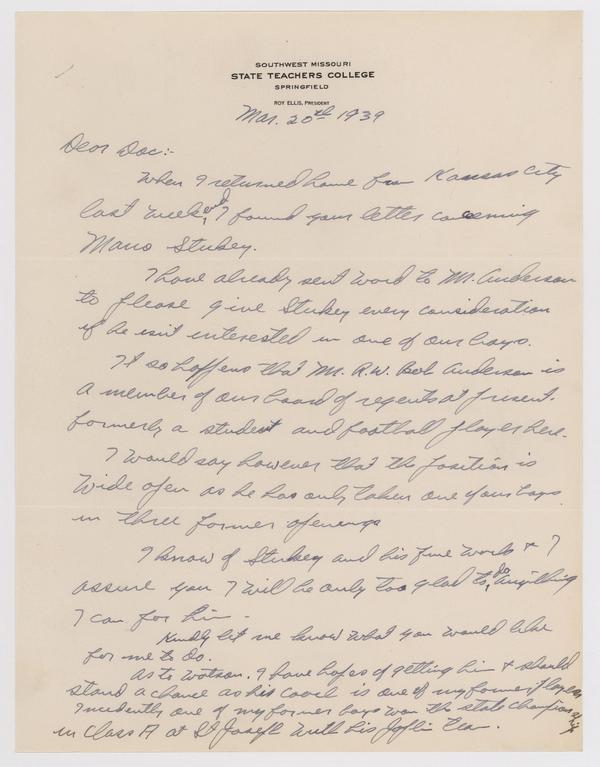 SOUTHWEST MISSOURI
STATE TEACHERS COLLEGE
SPRINGFIELD
ROY ELLIS, PRESIDENT
Mar. 20th 1939
Dear Doc:-
When I returned home from Kansas City
last week end, I found your letter concerning
Mano Stukey.
I have already sent word to Mr. Anderson
to please give Stukey every consideration
if he isn't interested in one of our boys.
It so happens that Mr. R.W. Bob Anderson is
a member of our board of regents at present.
formerly a student and football player here.
I would say however that the position is
wide open as he has only taken one of our boys
in three former openings
I know of Stukey and his fine work & I
assure you I will be only too glad to do anything
I can for him.
Kindly let me know what you would like
for me to do.
As to Watson. I have hopes of getting him & should
stand a chance as his coach is one of my former players
Incidently one of my former boys won the state championship
in Class A at St Joseph with his Joplin team.